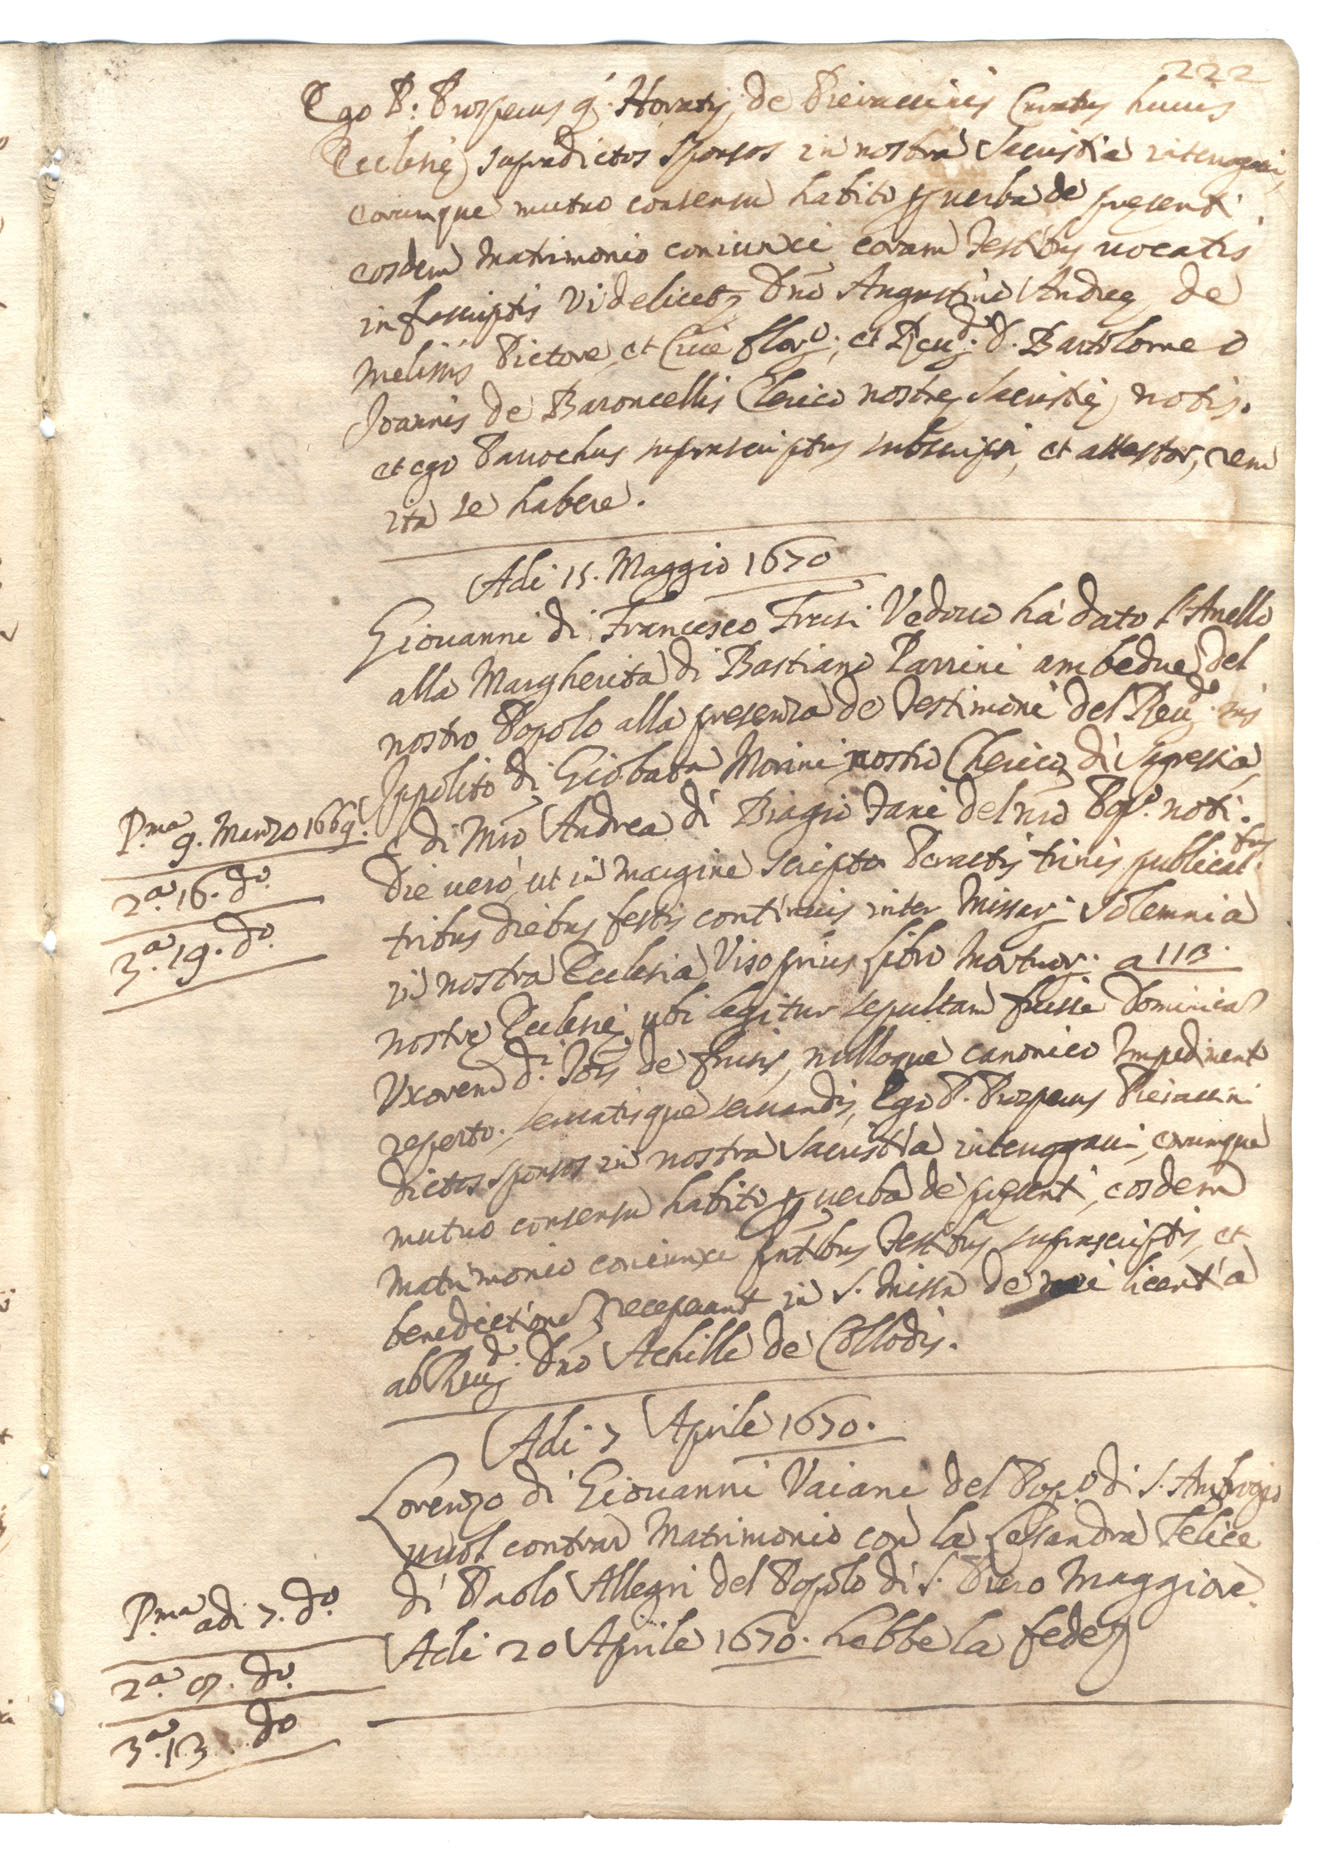 222
Ego P: Prosperus q. Horatij de Pieraccinis Curatus huius
Ecclesię supradictos Sponsos in nostra Sacristia interrogaui,
eorumque mutuo consensu habito p verba de presenti
eosdem Matrimonio coniunxi coram Testibus uocatis
infrascriptis Videlicet Dno Augustino Andreę de
Melissis Pictore, et Ciue flor.o; et Reud.o D. Bartolomeo
Joannis de Baroncellis Clerico nostrę Sacristię notis.
et ego Parochus suprascriptus subscripsi, et attestor, rem
ita se habere.
Adi 15. Maggio 1670
Giouanni di Francesco Frusi Vedouo ha dato l'Anello
alla Margherita di Bastiano Parrini ambedue del
nostro Popolo alla presenza de Testimoni del Reud.o
Ippolito di Giobatta Morini nostro Cherico di Sagrestia
e di Mro Andrea di Biagio Tani del nro Pop.o noti.
Die uero, ut in margine scripto Peractis trinis publicat.bus
tribus diebus festis continuis inter Missar. Solemnia
in nostra Ecclesia, Viso prius libro Mortuor. a 113.
nostrę Ecclesię, ubi legitur sepultam fuisse Dominica
Uxorem d.i Jois de frusis, nulloque canonico Impedimento
reperto. seruatisque seruandis, Ego P. Prosperus Pieraccini
dictos sponsos in nostra Sacristia interrogaui, eorumque
mutuo consensu habito p uerba de presenti, eosdem
Matrimonio coniunxi pntibus Testibus suprascriptis, et
benedictione receperunt in S. Missa de licentia
ab Reud.o Dno Achille de Collodis.
Pma 9. Marzo 1669.
2.a 16. do.
3.a 19. do.
Adi 7 Aprile 1670.
Lorenzo di Giouanni Vaiani del Pop.o di S. Ambrogio
uuol contrar Matrimonio con la Lesandra Felice
di Paolo Allegri del Popolo di S. Piero Maggiore.
Adi 20 Aprile 1670. hebbe la fede
Pma adi 7. do.
2.a do.
3.a 13. do